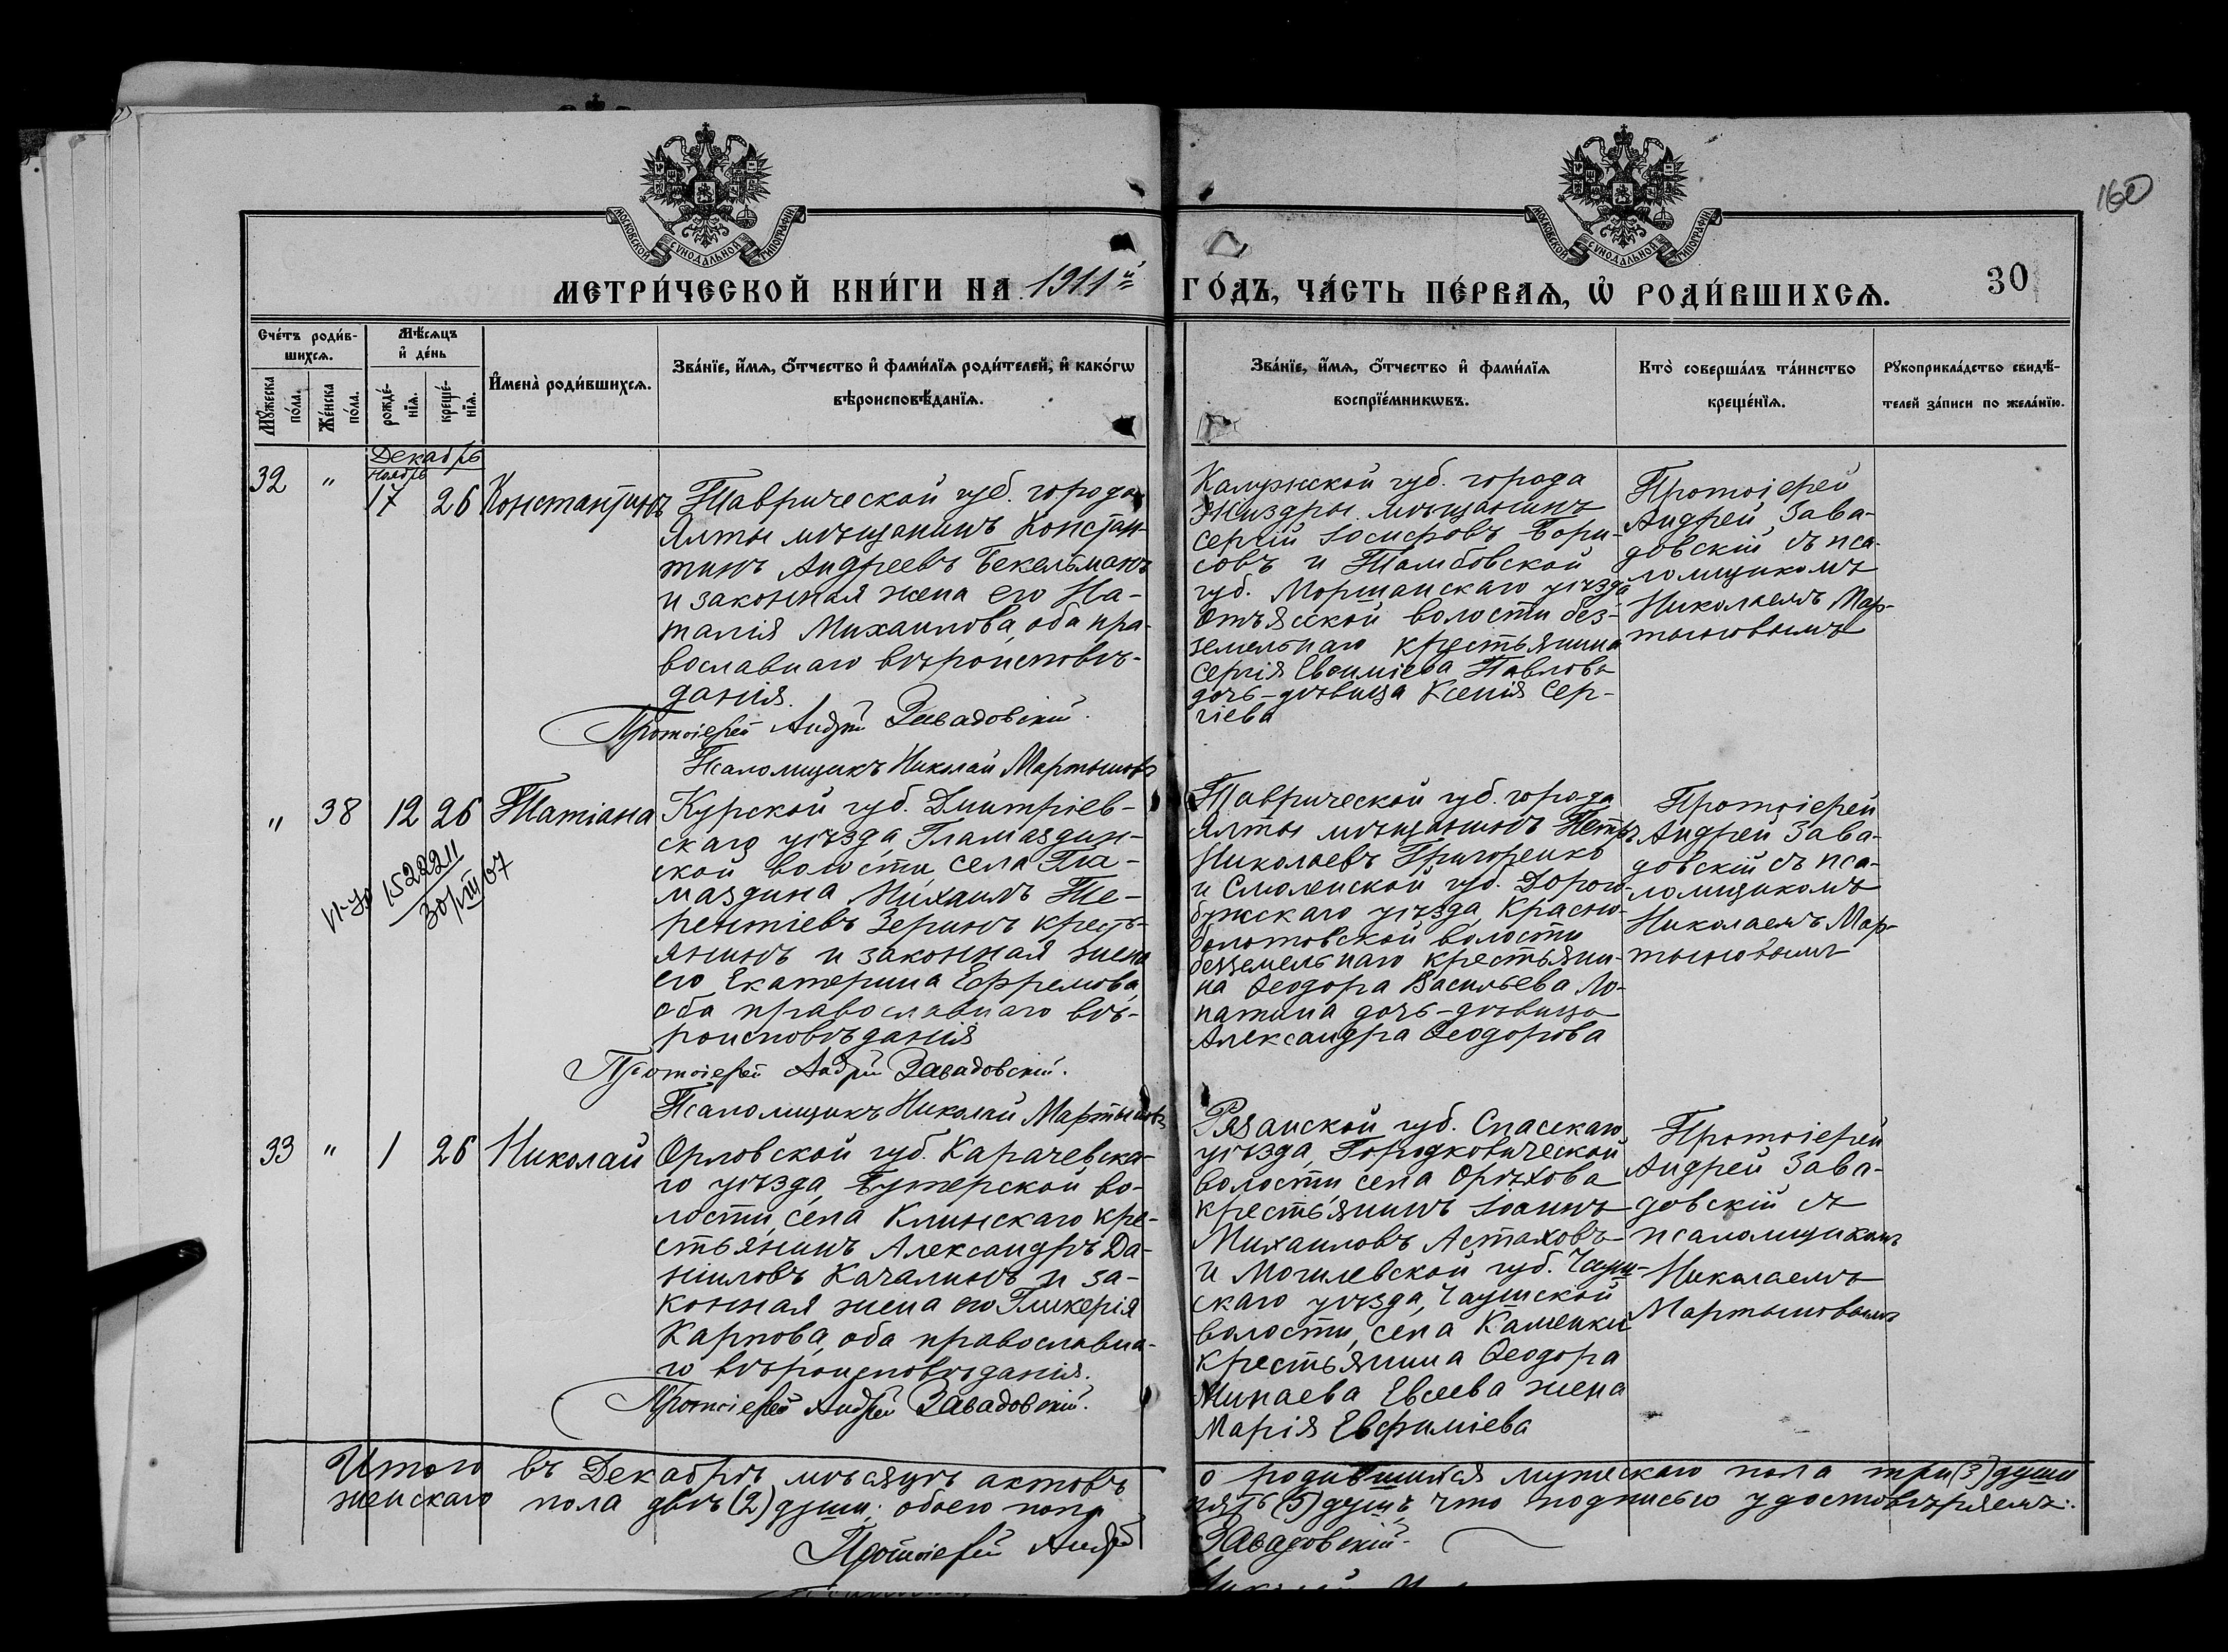 160
МОСКОВСКОЙ СѴНОДАЛЬНОЙ ТИПОГРАФІИ
МОСКОВСКОЙ СѴНОДАЛЬНОЙ ТИПОГРАФІИ
МЕТРИ́ЧЕСКОЙ КНИ́ГИ НА 1911й ГО́ДЪ, ЧА́СТЬ ПЕ́РВАѦ, Ѡ҆ РОДИ́ВШИХСѦ.
30
Сче́тъ роди́в-
шихсѧ.
Мѣ́сѧцъ
и҆ де́нь
Мꙋ́жеска
по́ла.
Же́нска
по́ла.
рожде́-
нїѧ.
креще́-
нїѧ.
И҆мена̀ роди́вшихсѧ.
Зва́нїе, и҆́мѧ, ѻ҆́тчество и҆ фами́лїѧ роди́телей, и҆ како́гѡ
вѣроисповѣ́данїѧ.
Зва́нїе, и҆́мѧ, ѻ҆́тчество и҆ фами́лїѧ
воспрїе́мникѡвъ.
Кто̀ соверша́лъ та́инство
креще́нїѧ.
Рꙋкоприкла́дство свидѣ́-
телей за́писи по жела́нїю.
Декабрь
Ноябрь
32 " 17 26 Константинъ
Таврической губ. города
Ялты мѣщанинъ Констан-
тинъ Андреевъ Бекельманъ
и законная жена его На-
талія Михаилова, оба пра-
вославнаго вѣроисповѣ-
данія.
Протоіерей Андрей Завадовскій.
Псаломщикъ Николай Мартыновъ
Калужской губ. города
Жиздры мѣщанинъ
Сергій Іосифовъ Бори-
совъ и Тамбовской
губ. Моршанскаго уѣзда
Отъясской волости без-
земельнаго крестьянина
Сергія Евѳиміева Павлова
дочь-дѣвица Ксенія Сер-
гіева
Протоіерей
Андрей Зава-
довскій съ пса-
ломщикомъ
Николаемъ Мар-
тыновымъ
" 38 12 26 Татіана
152221
30/III 67
Курской губ. Дмитріев-
скаго уѣзда, Гламаздин-
ской волости, села Гла-
маздина Михаилъ Те-
рентіевъ Зеринъ кресть-
янинъ и законная жена
его Екатерина Ефремова,
оба православнаго вѣ-
роисповѣданія
Протоіерей Андрей Завадовскій.
Псаломщикъ Николай Мартыновъ
Таврической губ. города
Ялты мѣщанинъ Петръ
Николаевъ Григоренко
и Смоленской губ. Дорого-
бужскаго уѣзда, Красно-
болотовской волости
безземельнаго крестьяни-
на Ѳеодора Васильева Ло-
патина дочь-дѣвица
Александра Ѳеодорова
Протоіерей
Андрей Зава-
довскій съ пса-
ломщикомъ
Николаемъ Мар-
тыновымъ
33 " 1 26 Николай
Орловской губ. Карачевска-
го уѣзда, Бутерской во-
лости, села Клинскаго кре-
стьянинъ Александръ Да-
ніиловъ Качалинъ и за-
конная жена его Гликерія
Карпова, оба православна-
го вѣроисповѣданія.
Протоіерей Андрей Завадовскій.
Рязанской губ. Спасскаго
уѣзда, Городковической
волости села Орѣхова
крестьянинъ Іоаннъ
Михаиловъ Астаховъ
и Могилевской губ. Чаус-
скаго уѣзда, Чаусской
волости, села Каменки
крестьянина Ѳеодора
Минаева Евсеева жена
Марія Евфиміева
Протоіерей
Андрей Зава-
довскій съ
псаломщикомъ
Николаемъ
Мартыновымъ
Итого въ Декабрѣ мѣсяцѣ актовъ о родившихся мужескаго пола три (3) души
женскаго пола двѣ (2) души; обоего пола пять (5) душъ, что подписью удостовѣряемъ:
Протоіерей Андрей Завадовскій.